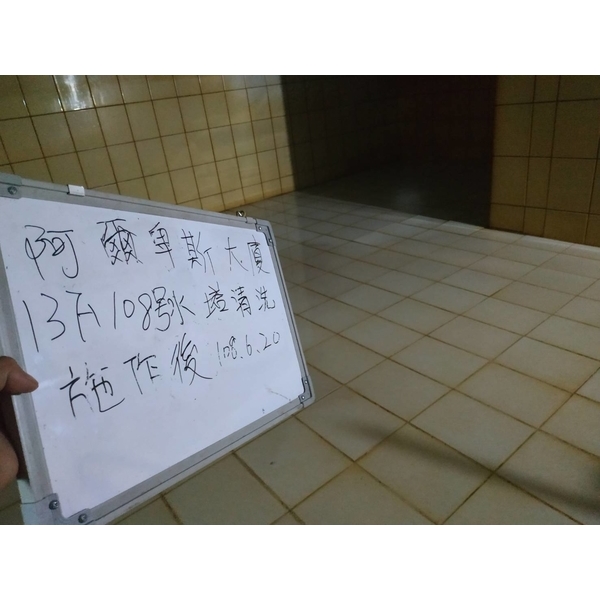 阿爾卑斯大廈
13F108號水塔清洗
施作後108.6.20